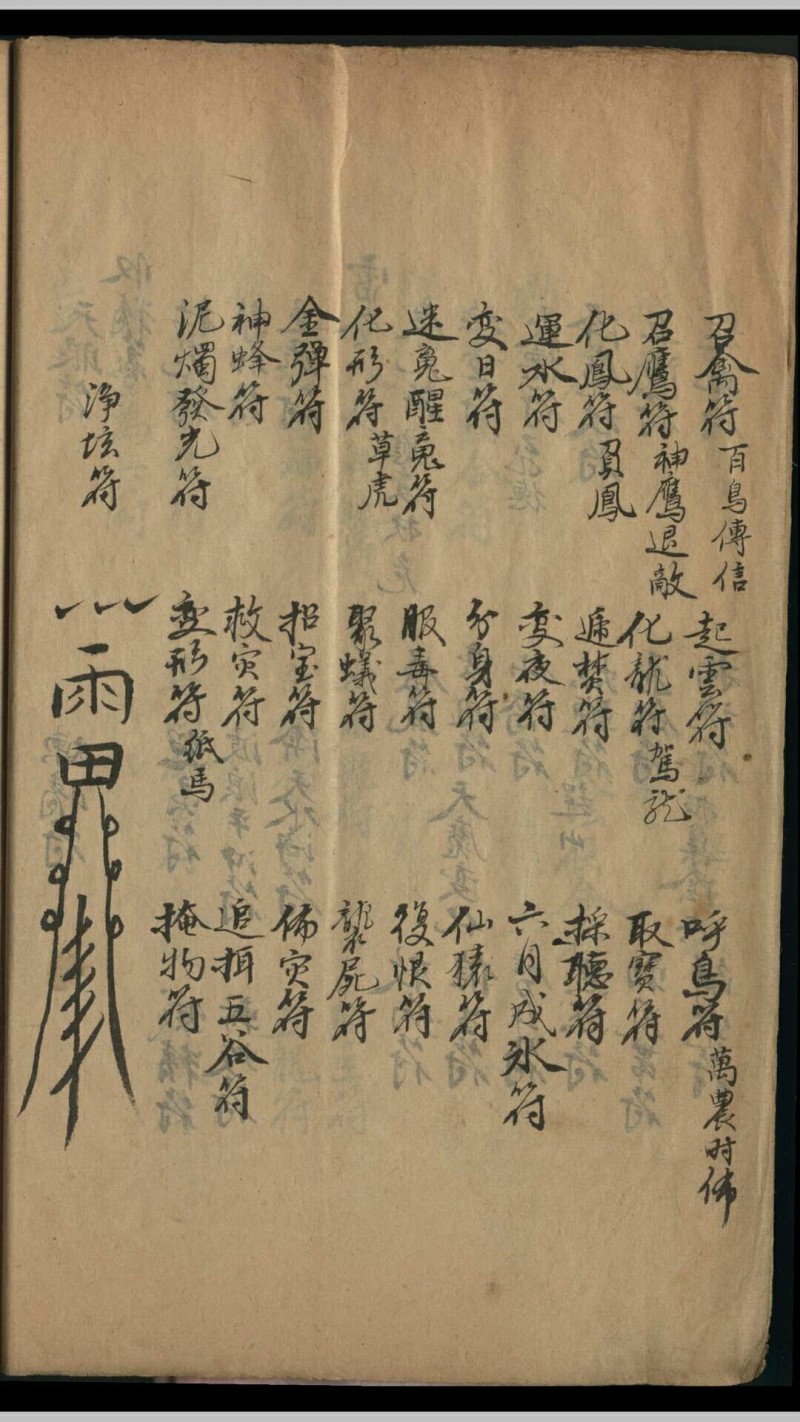 召禽符 百鳥傳信
起雲符
呼鳥符 萬農时佈
召鷹符 神鷹退敵
化龍符 駕龙
取寶符
化鳳符 員鳳
遞焚符
採聽符
運水符
变夜符
六月成氷符
变日符
分身符
仙猿符
迷䰟醒䰟符
服毒符
復恨符
化形符 草虎
聚蟻符
襲屍符
金弹符
招宝符
佈灾符
神蜂符
救灾符
追揖五谷符
泥燭發光符
变形符 紙馬
掩物符
淨坛符
雨田